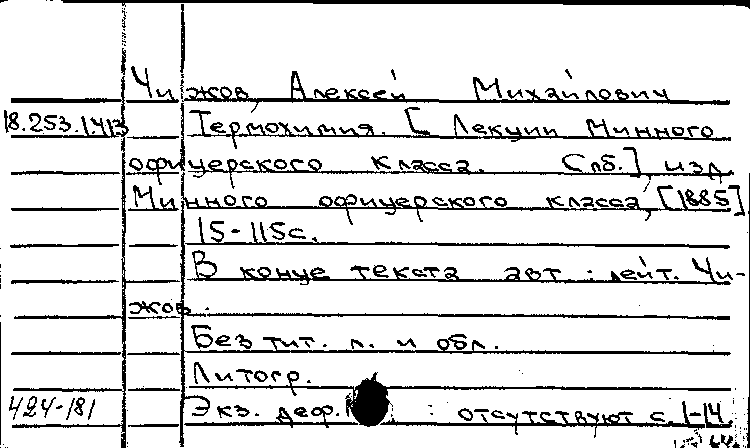 Чижов, Алексей Михайлович
18.253.1.413 Термохимия. [Лекции Минного
офицерского класса. Спб.], изд.
Минного офицерского класса, [1885]
15-115с.
В конце текста авт.: лейт. Чи-
жов.
Без тит. л. и обл.
Литогр.
424-181 Экз. деф. : отсутствуют с. 1-14.